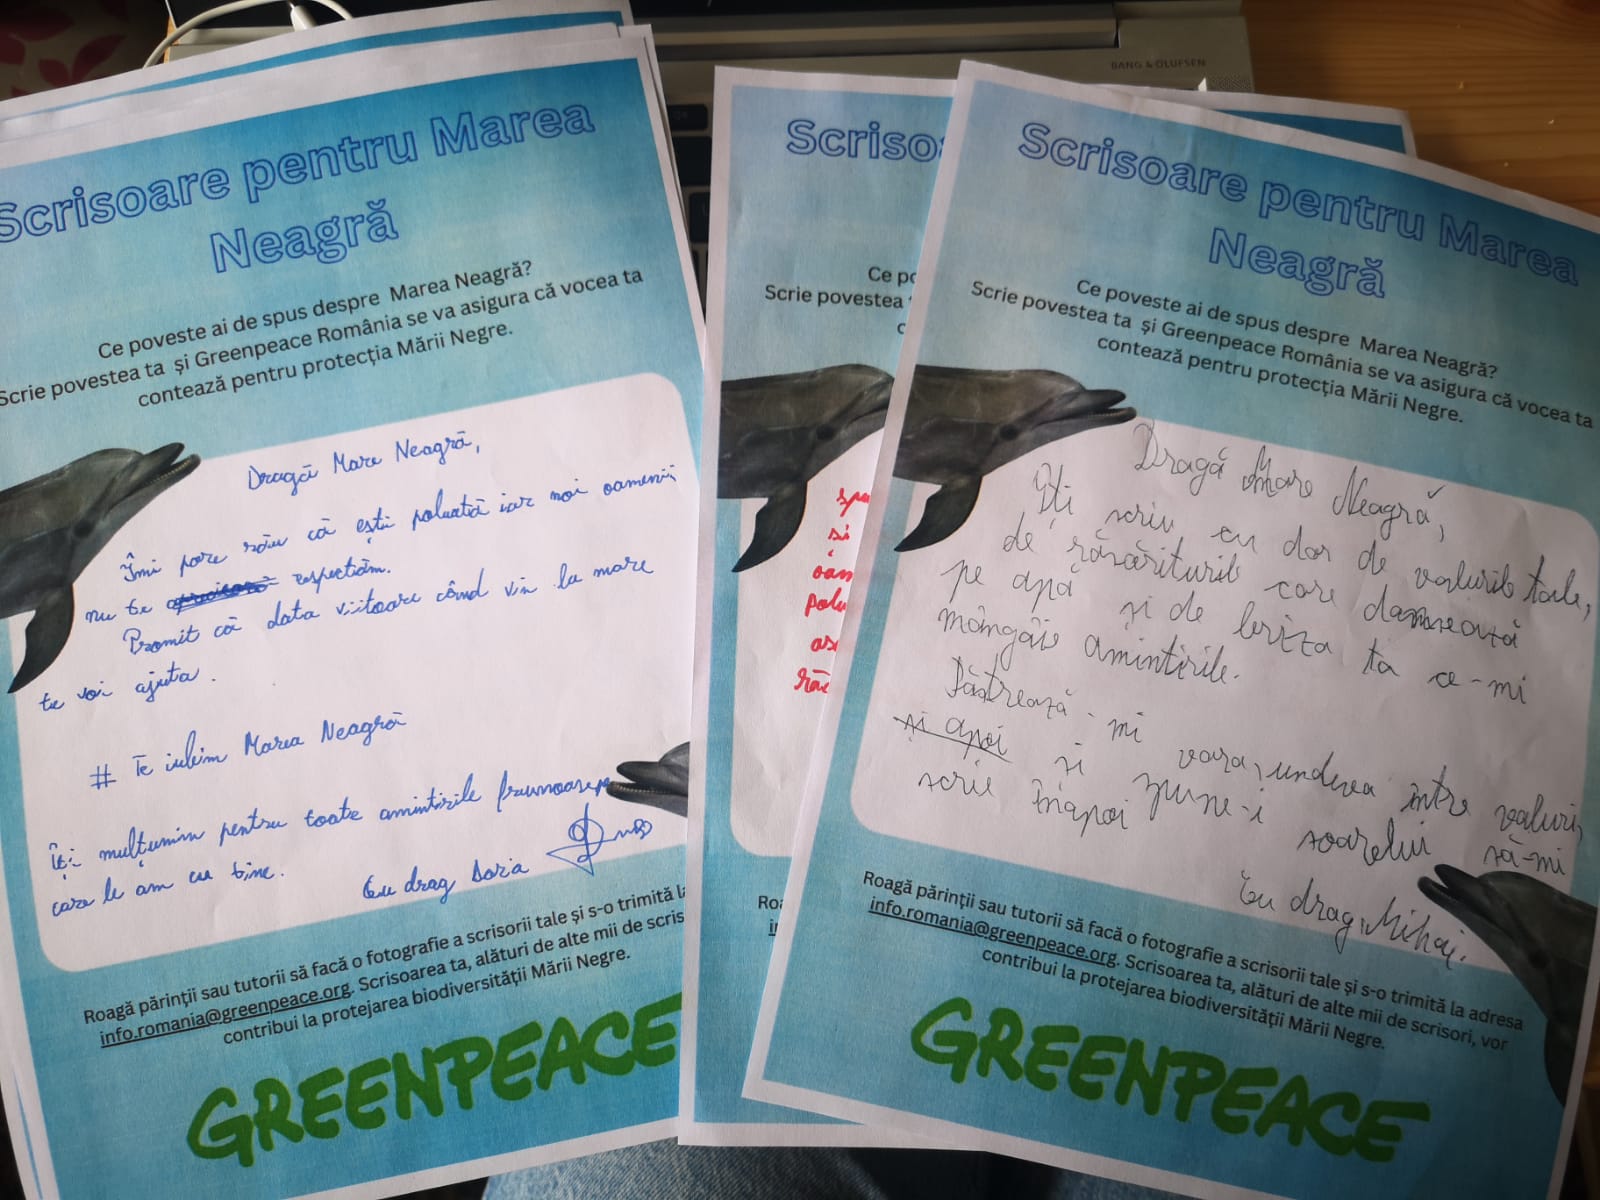 BANG & OLUFSEN
Scrisoare pentru Marea
Neagră
Ce poveste ai de spus despre Marea Neagră?
Scrie povestea ta și Greenpeace România se va asigura că vocea ta
contează pentru protecția Mării Negre.
Dragă Mare Neagră,
Îmi pare rău că ești poluată iar noi oamenii
nu te respectăm.
Promit că data viitoare când vin la mare
te voi ajuta.
# Te iubim Marea Neagră
Îți mulțumim pentru toate amintirile frumoase pe
care le am cu tine.
Cu drag Daria
Roagă părinții sau tutorii să facă o fotografie a scrisorii tale și s-o trimită la
info.romania@greenpeace.org. Scrisoarea ta, alături de alte mii de scris
contribui la protejarea biodiversității Mării Negre.
GREENPEACE
Scriso
Ce po
Scrie povestea
c
și
oam
polu
Roa
i
Scrisoare pentru Marea
Neagră
Ce poveste ai de spus despre Marea Neagră?
Scrie povestea ta și Greenpeace România se va asigura că vocea ta
contează pentru protecția Mării Negre.
Dragă Mare Neagră,
Îți scriu cu dor de valurile tale,
de răsăriturile care dansează
pe apă și de briza ta ce-mi
mângâie amintirile.
Păstrează-mi vara, undeva între valuri,
și apoi și spune-i soarelui să-mi
scrie înapoi
Cu drag, Mihai.
Roagă părinții sau tutorii să facă o fotografie a scrisorii tale și s-o trimită la adresa
info.romania@greenpeace.org. Scrisoarea ta, alături de alte mii de scrisori, vor
contribui la protejarea biodiversității Mării Negre.
GREENPEACE